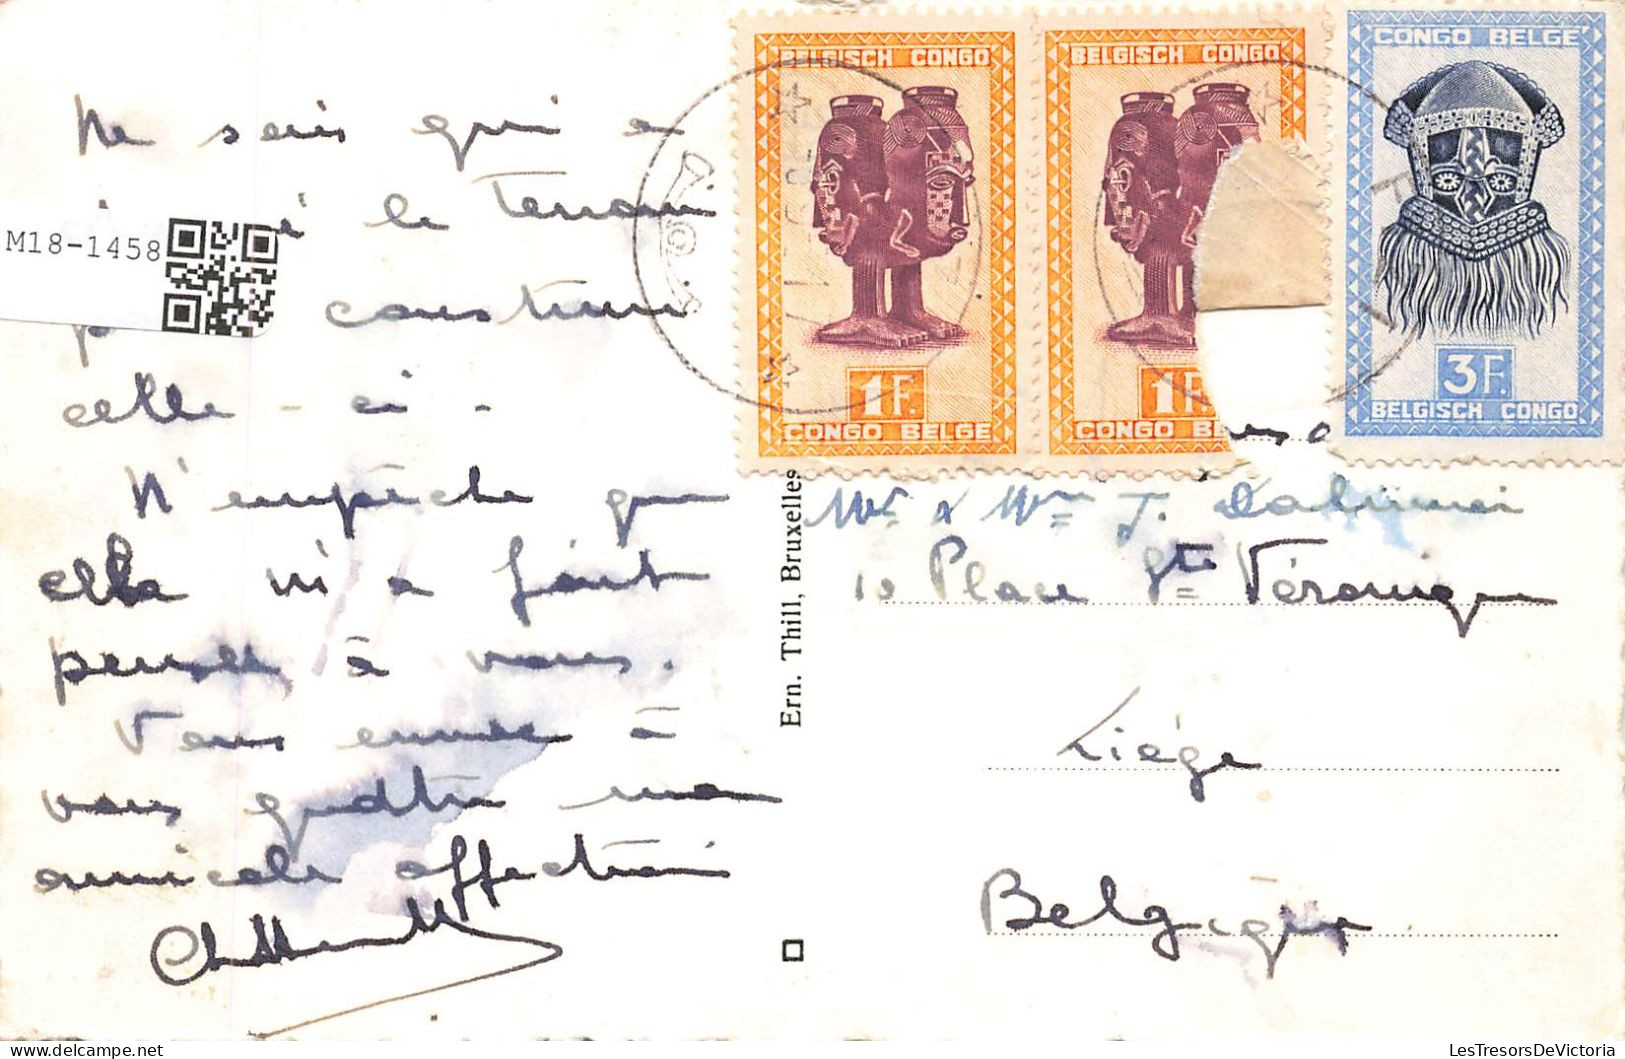 BELGISCH CONGO
1F.
CONGO BELGE
BELGISCH CONGO
1F.
CONGO BELGE
CONGO BELGE
3F.
BELGISCH CONGO
Ne sais qui a
le Terrain
M18-1458
construire
celle-ci.
N'empêche que
cela m'a fait
penser à vous.
Vous envoie à
vous quatre mon
amicale affection
Ern. Thill, Bruxelles
Mr & Mme J.
10 Place Ste Véronique
Liége
Belgique
LesTresorsDeVictoria